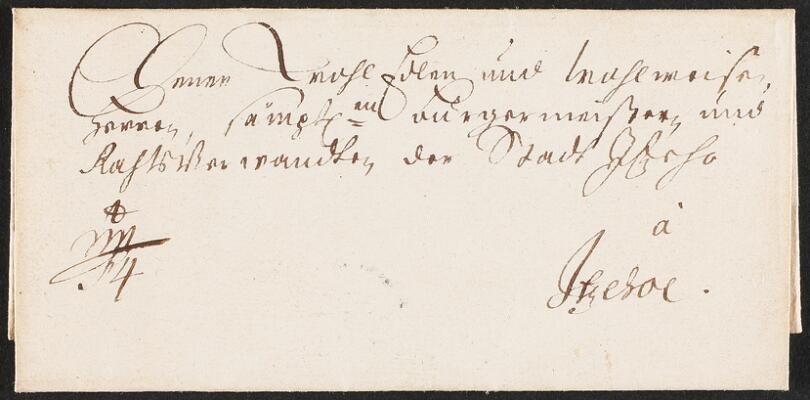 Denen Wohl Edlen und Wohlweisen
Herren, sämptl.en Bürgermeistern und
RahtsVerwandten der Stadt Itzeho
à
Itzehoe.